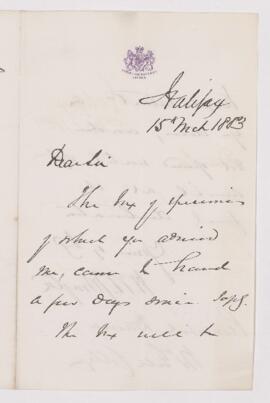 Halifax
15th Mch 1883
Dear Sir
The box of specimens
of which you advised
me, came to hand
a few days since
The box will be